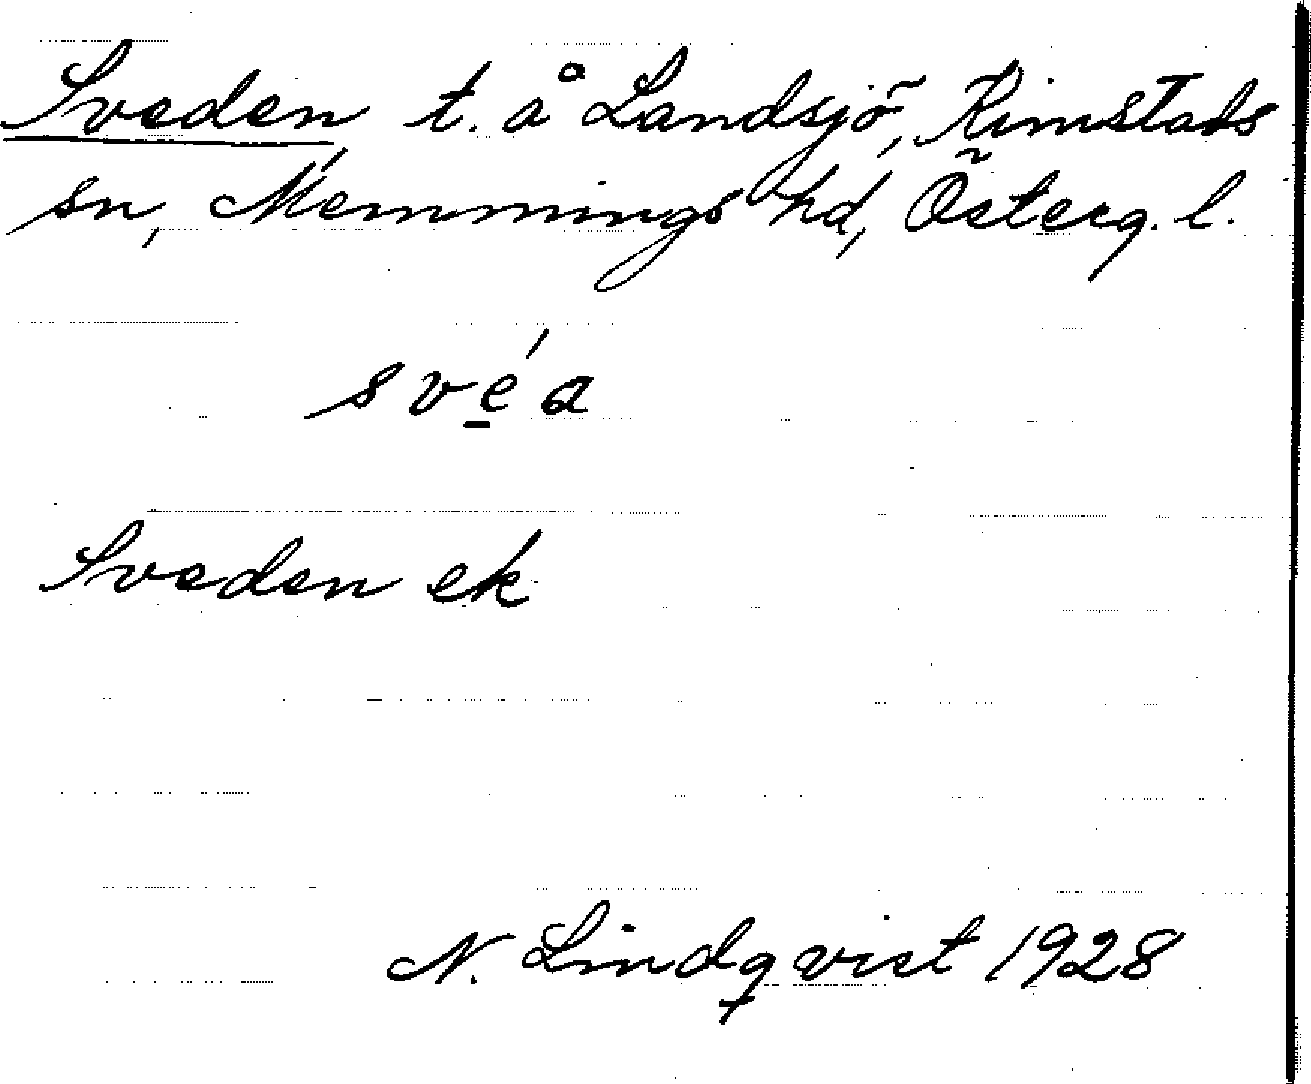 Sveden t. å Landsjö, Kimstads
sn, Memmings hd, Österg. l.
svéa
Sveden ek
N. Lindqvist 1928